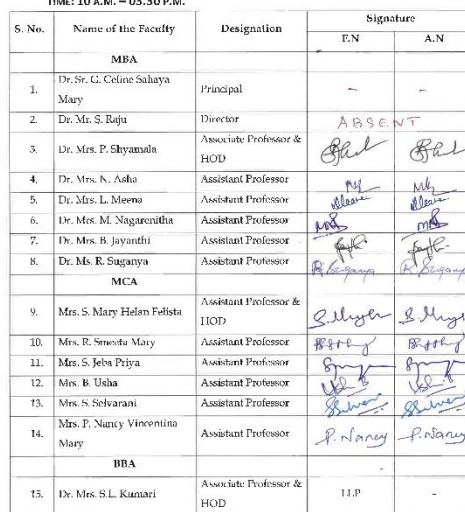 TIME: 10 A.M. – 03.30 P.M.
S. No. Name of the Faculty Designation Signature
F.N A.N
MBA
1. Dr. Sr. G. Celine Sahaya Mary Principal - -
2. Dr. Mr. S. Raju Director ABSENT
3. Dr. Mrs. P. Shyamala Associate Professor & HOD
4. Dr. Mrs. N. Asha Assistant Professor
5. Dr. Mrs. L. Meena Assistant Professor
6. Dr. Mrs. M. Nagarenitha Assistant Professor
7. Dr. Mrs. B. Jayanthi Assistant Professor
8. Dr. Ms. R. Suganya Assistant Professor R. Suganya R. Suganya
MCA
9. Mrs. S. Mary Helan Felista Assistant Professor & HOD
10. Mrs. R. Smeeta Mary Assistant Professor
11. Mrs. S. Jeba Priya Assistant Professor
12. Mrs. B. Usha Assistant Professor
13. Mrs. S. Selvarani Assistant Professor
14. Mrs. P. Nancy Vincentina Mary Assistant Professor P. Nancy P. Nancy
BBA -
15. Dr. Mrs. S.L. Kumari Associate Professor & HOD LLP -